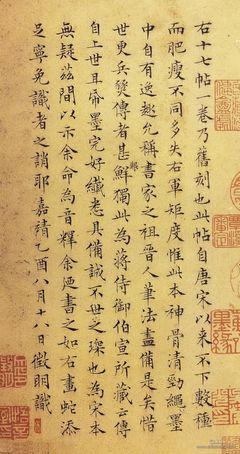 右十七帖一卷乃舊刻也此帖自唐宋以來不下數種
而肥瘦不同多失右軍矩度惟此本神骨清勁繩墨
中自有逸趣允稱書家之祖晉人筆法盡備是矣惜
世更兵燹傳者甚鮮獨此為蔣侍御伯宣所藏云傳
自上世且帋墨完好纖悉具備誠不世之琛也為宋本
無疑茲間以示余命為音釋余書之如右畫蛇添
足寧免識者之誚耶嘉靖乙酉八月十八日徵明識